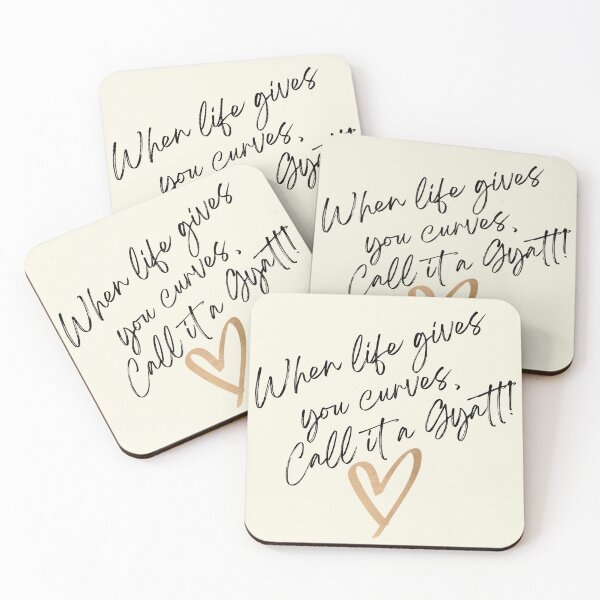 When life gives
you curves,
When life gives
you curves,
Call it a Gyatt!
When life gives
you curves,
Call it a Gyatt!
When life gives
you curves,
Call it a Gyatt!